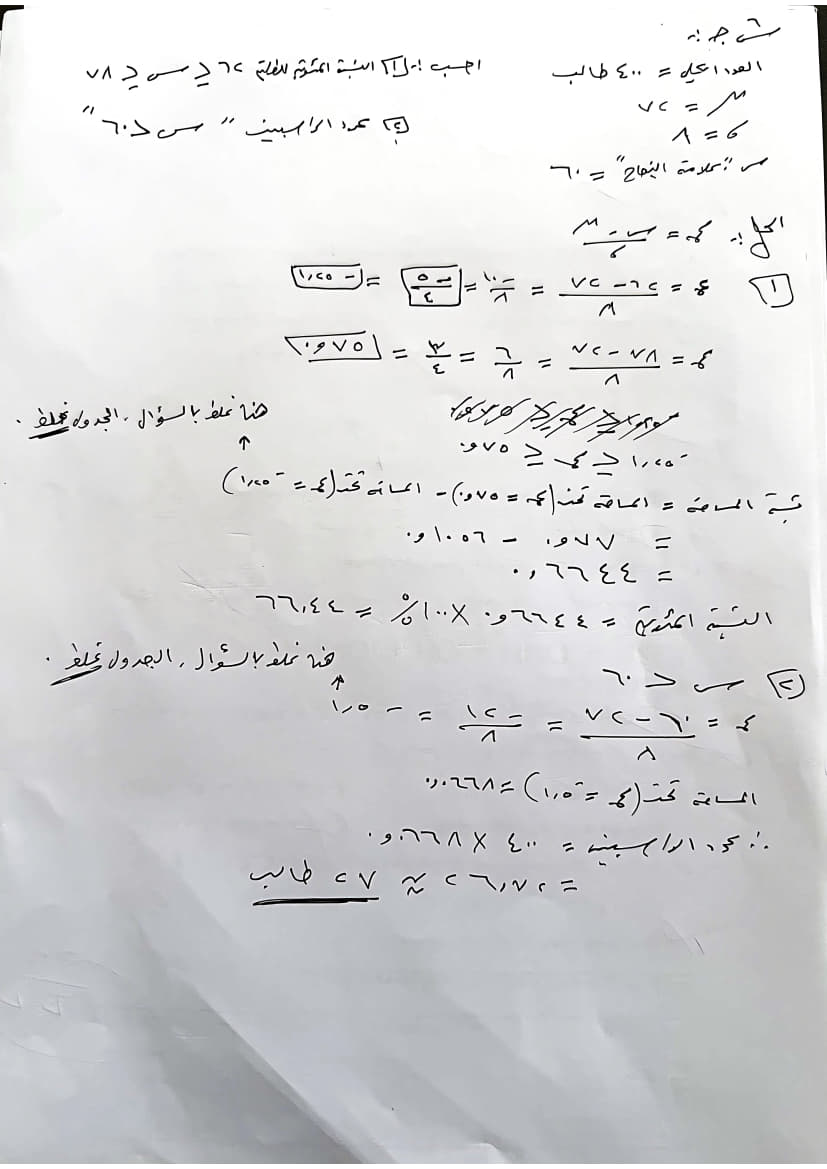 س ٦ جـ :-
العدد الكلي = ٤٠٠ طالب
اجب :- [١] النسبة المئوية للفئة ٦٢ ≤ س ≤ ٧٨
μ = ٧٢
[٢] عدد الراسبين "س < ٦٠"
σ = ٨
س "علامة النجاح" = ٦٠
الحل :- ع = س - μ / σ
[١] ع = ٦٢ - ٧٢ / ٨ = -١٠ / ٨ = -٥ / ٤ = -١,٢٥
ع = ٧٨ - ٧٢ / ٨ = ٦ / ٨ = ٣ / ٤ = ٠,٧٥
هنا غلط بالسؤال ، الجدول غلط .
-١,٢٥ ≤ ع ≤ ٠,٧٥
نسبة المساحة = المساحة تحت (ع = ٠,٧٥) - المساحة تحت (ع = -١,٢٥)
= ٠,٧٧ - ٠,١٠٥٦
= ٠,٦٦٤٤
النسبة المئوية = ٠,٦٦٤٤ × ١٠٠٪ = ٦٦,٤٤
هنا غلط بالسؤال ، الجدول غلط .
[٢] س < ٦٠
ع = ٦٠ - ٧٢ / ٨ = -١٢ / ٨ = -١,٥
المساحة تحت (ع = -١,٥) = ٠,٠٦٦٨
∴ عدد الراسبين = ٤٠٠ × ٠,٠٦٦٨
= ٢٦,٧٢ ≈ ٢٧ طالب